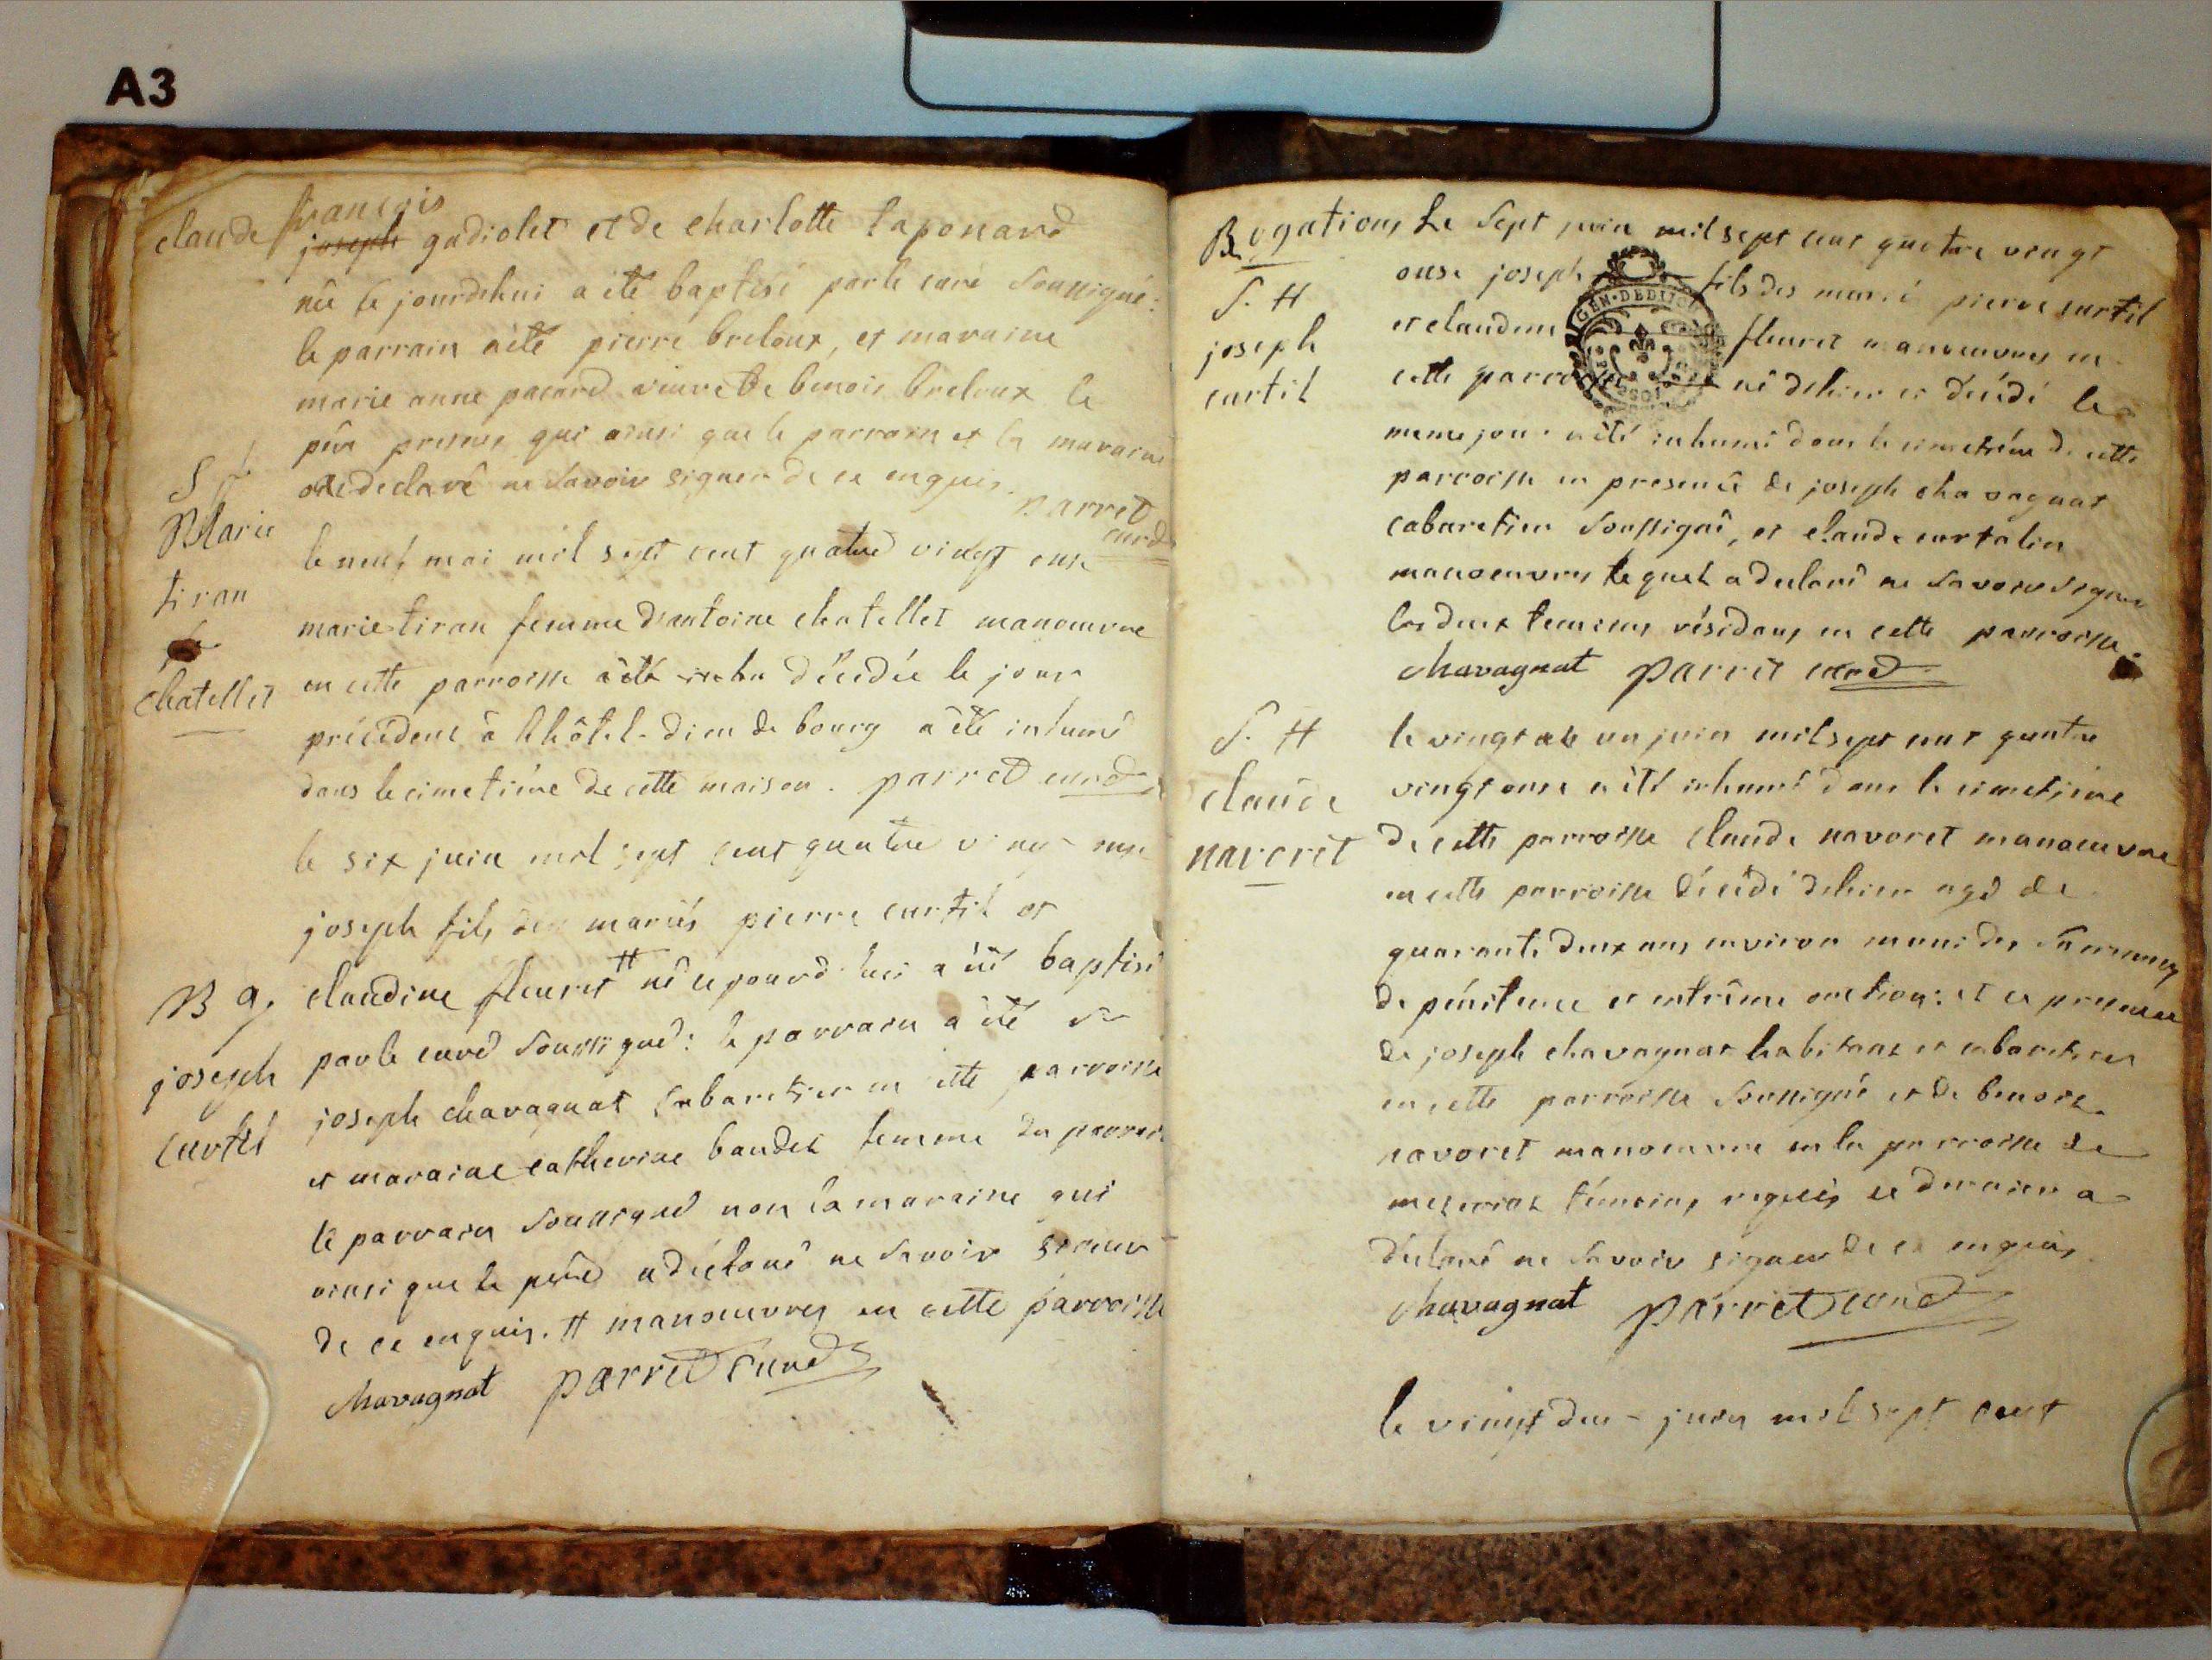 A3
claude françois
joseph gadiolet et de charlotte taponard
née le jourdhui a été baptisé par le curé soussigné:
le parrain a été pierre breloux, et maraine
marie anne pacard viuve de benois breloux le
père present qui ainsi que le parrain et la maraine
ont declaré ne savoir signer de ce enquis.
parret curé
S f
Marie
tiran
f
chatellet
le neuf mai mil sept cent quatre vingt onse
marie tiran femme d'antoine chatellet manoeuvre
en cette parroisse a été inhu décédée le jour
précédent à l'hôtel-dieu de bourg a été inhumé
dans le cimetiére de cette maison. parret curé
B g.
joseph
curtil
le six juin mil sept cent quatre vingt onse
joseph fils des mariés pierre curtil et
claudine fleuret # né cejourd'hui a été baptisé
par le curé soussigné: le parrain a été
joseph chavagnat cabaretier en cette parroisse
et maraine catherine baudet femme du parrain
le parrain soussigné non la maraine qui
ainsi que le père a déclaré ne savoir signer
de ce enquis. # manoeuvres en cette parroisse
chavagnat parret curé
Rogations
S. H
joseph
curtil
Le sept juin mil sept cent quatre vingt
onse joseph fils des mariés pierre curtil
et claudine fleuret manoeuvres en
cette parroisse né dehier et décédé le
meme jour a été inhumé dans le cimetiére de cette
parroisse en presence de joseph chavagnat
cabaretier soussigné, et claude curtalin
manoeuvres lequel a declaré ne savoir signer
les deux temoins résidans en cette parroisse.
chavagnat parret curé
S. H
claude
navoret
le vingt et un juin mil sept cent quatre
vingt onse a été inhumé dans le cimetiére
de cette parroisse claude navoret manoeuvre
en cette parroisse décédé dehier agé de
quarante deux ans environ muni des sacremens
de pénitence et extrême onction: et en presence
de joseph chavagnat habitant et cabaretier
en cette parroisse soussigné et de benois
navoret manoeuvre en la parroisse de
meseriat témoins requis ce dernier a
déclaré ne savoir signer de ce enquis
chavagnat parret curé
le vingt deux juin mil sept cent